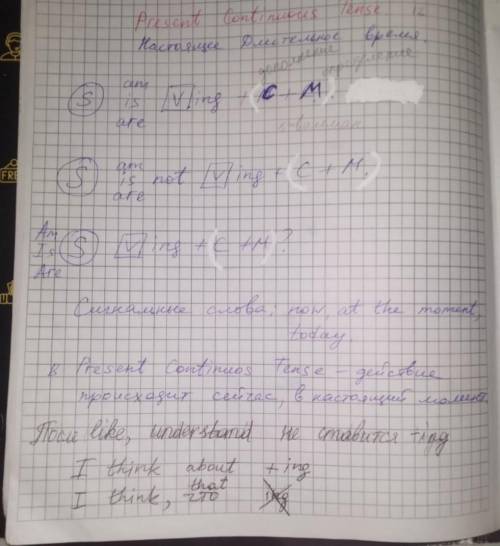 Present Continuous Tense
Настоящее Длительное время.
дополнение
определение
S am is are [V] ing + (C + M).
S am is are not [V] ing + (C + M).
Am Is Are S [V] ing + (C + M)?
Сигнальные слова: now, at the moment,
today.
Present Continuos Tense - действие
происходит сейчас, в настоящий момент.
После like, understand не ставится -ing
I think about + ing
I think, that что ing
FRE